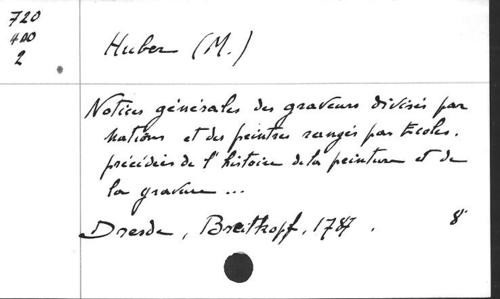 720
400
2
Huber (M.)
Notices générales des graveurs divisés par
nations et des peintres rangés par Ecoles.
précédées de l'histoire de la peinture et de
la gravure ...
Dresde, Breitkopf, 1787. 8°